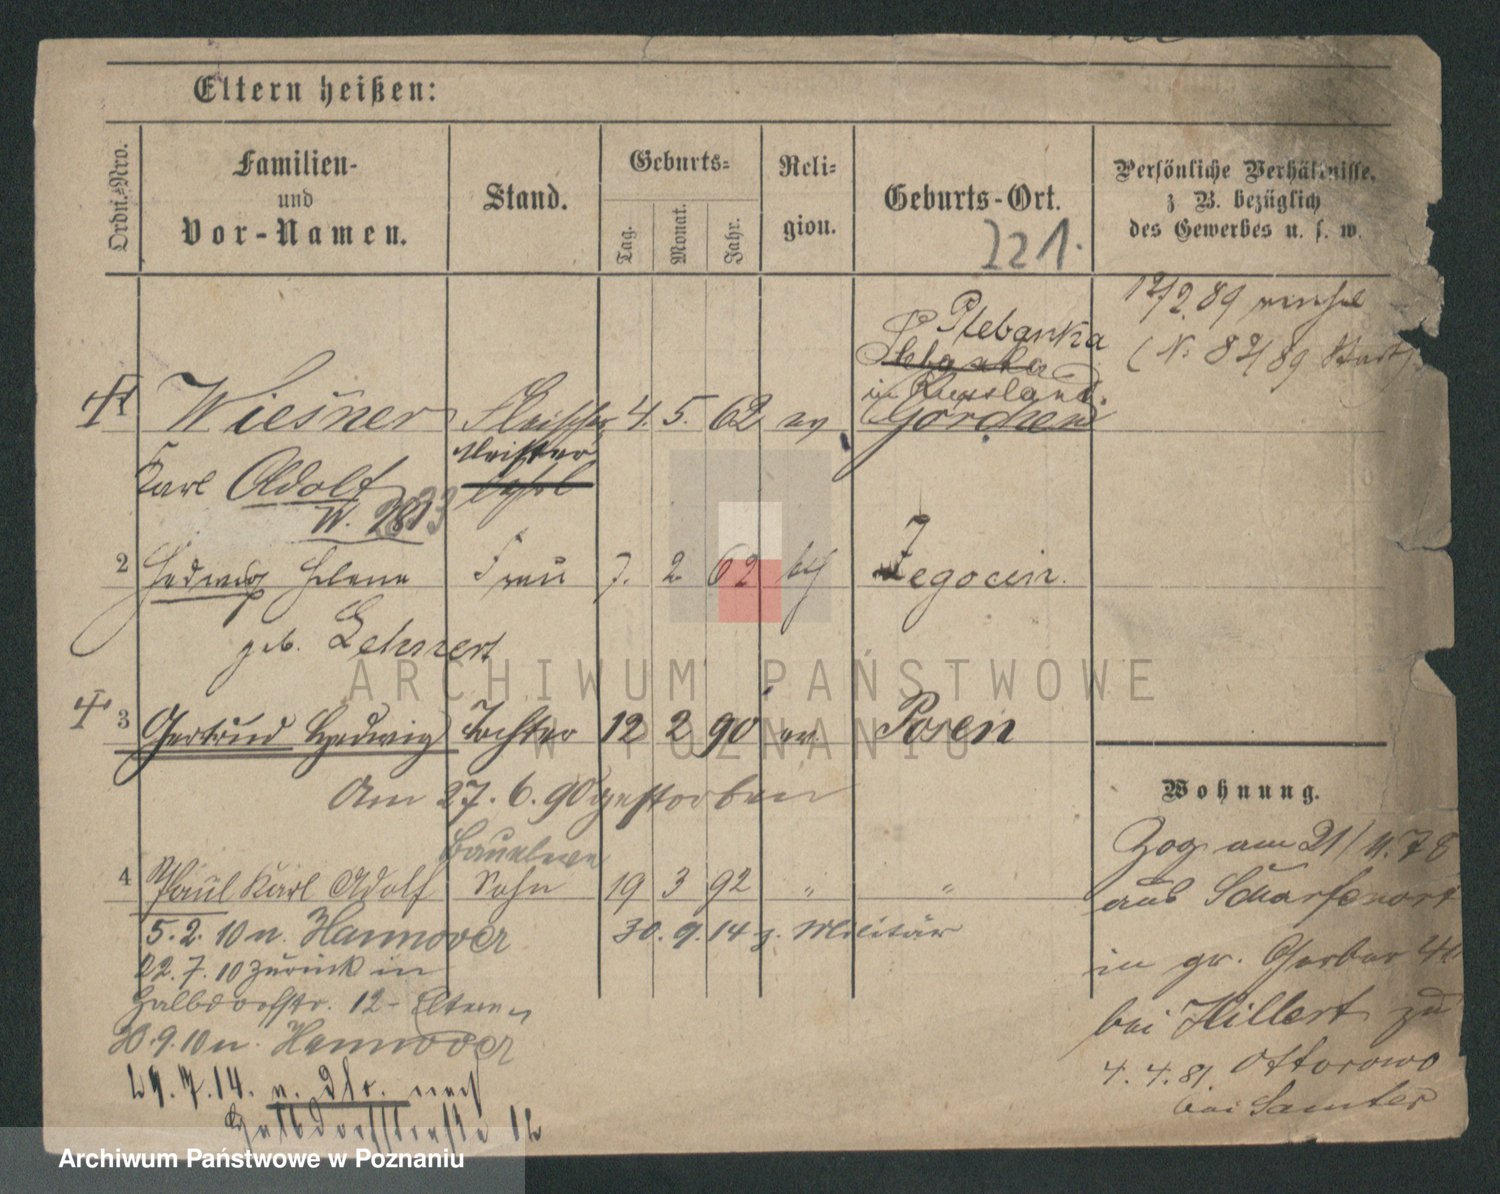 Eltern heißen:
Ordn.-Nro.
Familien-
und
Vor-Namen.
Stand.
Geburts-
Tag.
Monat.
Jahr.
Reli-
gion.
Geburts-Ort.
221.
Persönliche Verhältnisse,
z B. bezüglich
des Gewerbes u. s. w.
12/2.89
(N. 82/89
Plebanka
in Russland.
Wiesner Fleischer 4. 5. 62 ev Görchen
Meister
Karl Adolf
W. 2833
2 Hedwig Helene Frau 7. 2 62 kth Zegocin.
geb. Lehnert
3 Gertrud Hedwig Tochter 12 2 90 ev Posen
Am 27. 6. 90 gestorben
Baueleve
4 Paul Karl Adolf Sohn 19 3 92 " "
5. 2. 10 n. Hannover 30. 9. 14 z. Militär
22. 7. 10 zurück in
Halbdorfstr. 12 - Eltern
30. 9. 10 n. Hannover
29. 7. 14. v. dir. nach
Halbdorfstraße 12
Wohnung.
Zog am 21/11. 78
aus Scharfenort
in gr. Gerber 4
bei Hillert zu
4. 4. 81. Ottorowo
bei Samter
ARCHIWUM PAŃSTWOWE
W POZNANIU
Archiwum Państwowe w Poznaniu